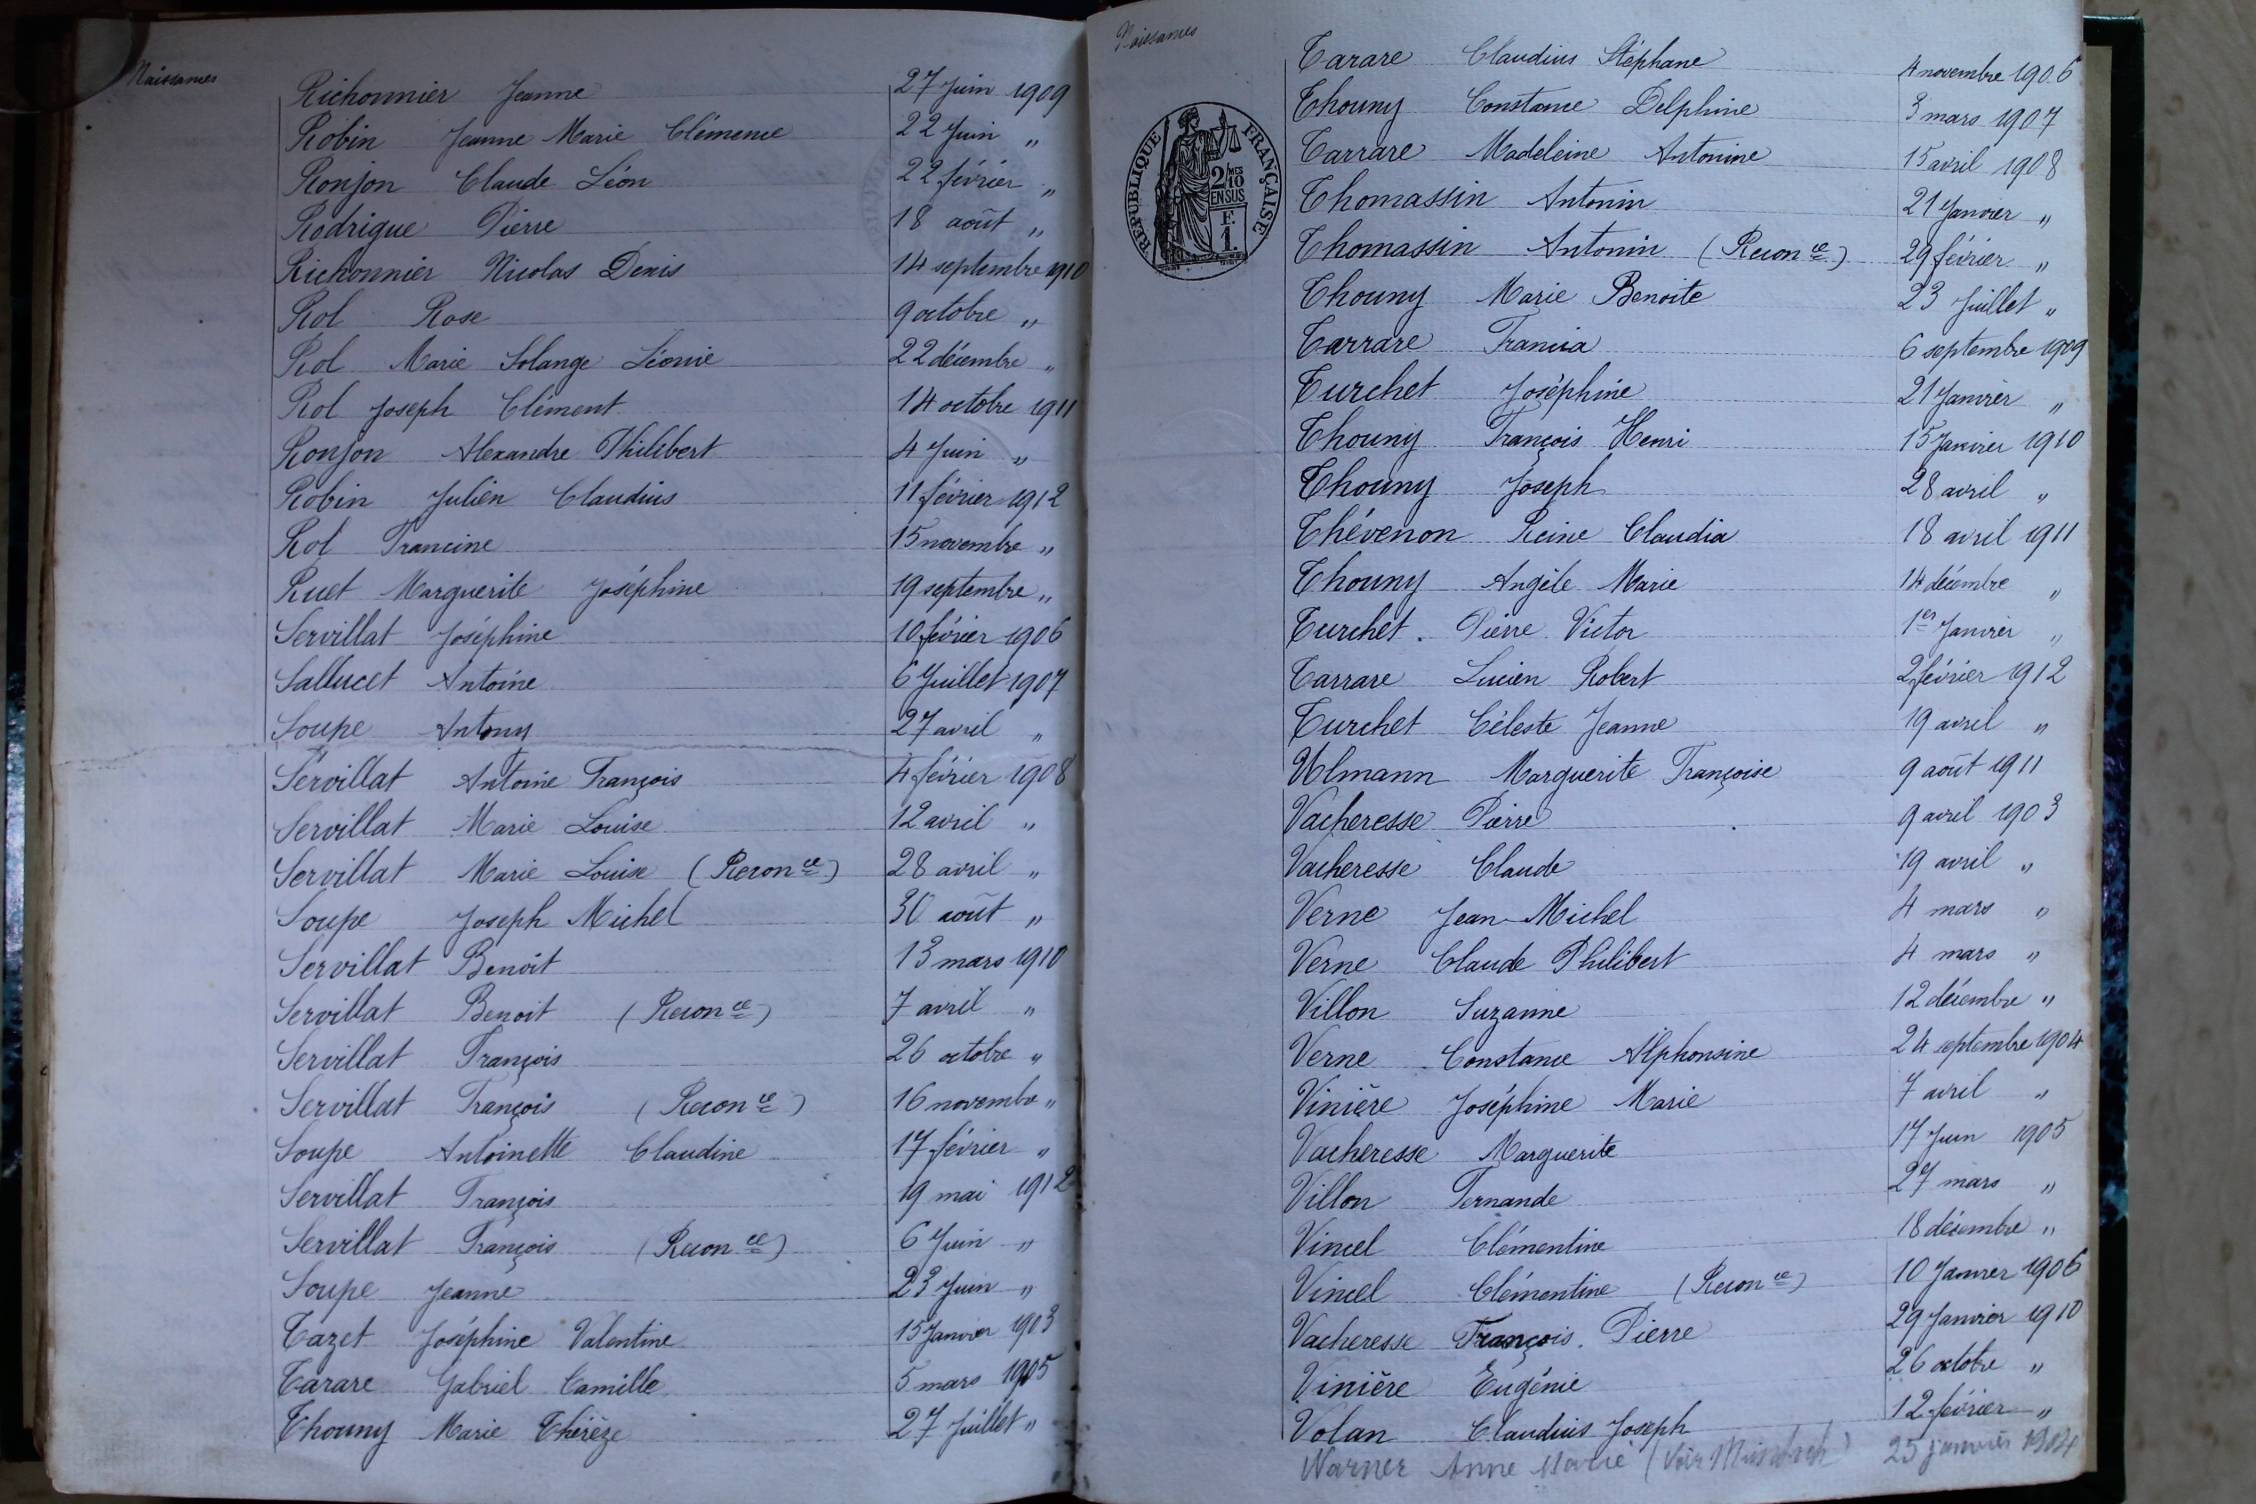 Naissances
Richonnier Jeanne 27 Juin 1909
Robin Jeanne Marie Clémence 22 Juin "
Ronjon Claude Léon 22 février "
Rodrigue Pierre 18 août "
Richonnier Nicolas Denis 14 septembre 1910
Rol Rose 9 octobre "
Rol Marie Solange Léonie 22 décembre "
Rol Joseph Clément 14 octobre 1911
Ronjon Alexandre Philibert 4 Juin "
Robin Julien Claudius 11 février 1912
Rol Francine 15 novembre "
Ruet Marguerite Joséphine 19 septembre "
Servillat Joséphine 10 février 1906
Sallucet Antoine 6 Juillet 1907
Soupe Antony 27 avril "
Servillat Antoine François 4 février 1908
Servillat Marie Louise 12 avril "
Servillat Marie Louise (Recon ce) 28 avril "
Soupe Joseph Michel 30 août "
Servillat Benoit 13 mars 1910
Servillat Benoit (Recon ce) 7 avril "
Servillat François 26 octobre "
Servillat François (Recon ce) 16 novembre "
Soupe Antoinette Claudine 17 février "
Servillat François 19 mai 1912
Servillat François (Recon ce) 6 Juin "
Soupe Jeanne 23 Juin "
Tazet Joséphine Valentine 15 Janvier 1903
Tarare Gabriel Camille 5 mars 1905
Thouny Marie Thérèze 27 Juillet "
Naissances
REPUBLIQUE FRANÇAISE
2 MES
10
EN SUS
F.
1.
Tarare Claudius Stéphane 4 novembre 1906
Thouny Constance Delphine 3 mars 1907
Tarrare Madeleine Antonine 15 avril 1908
Thomassin Antonin 21 Janvier "
Thomassin Antonin (Recon ce) 29 février "
Thouny Marie Benoite 23 Juillet "
Tarrare Francia 6 septembre 1909
Turchet Joséphine 21 Janvier "
Thouny François Henri 15 Janvier 1910
Thouny Joseph 28 avril "
Thévenon Reine Claudia 18 avril 1911
Thouny Angèle Marie 14 décembre "
Turchet Pierre Victor 1er Janvier "
Tarrare Lucien Robert 2 février 1912
Turchet Céleste Jeanne 19 avril "
Ulmann Marguerite Françoise 9 août 1911
Vacheresse Pierre 9 avril 1903
Vacheresse Claude 19 avril "
Verne Jean-Michel 4 mars "
Verne Claude Philibert 4 mars "
Villon Suzanne 12 décembre "
Verne Constance Alphonsine 24 septembre 1904
Vinière Joséphine Marie 7 avril "
Vacheresse Marguerite 17 Juin 1905
Villon Fernande 27 mars "
Vincel Clémentine 18 décembre "
Vincel Clémentine (Recon ce) 10 Janvier 1906
Vacheresse François Pierre 29 Janvier 1910
Vinière Eugénie 26 octobre "
Volan Claudius Joseph 12 février "
Warner Anne Marie (Voir 25 janvier 1904